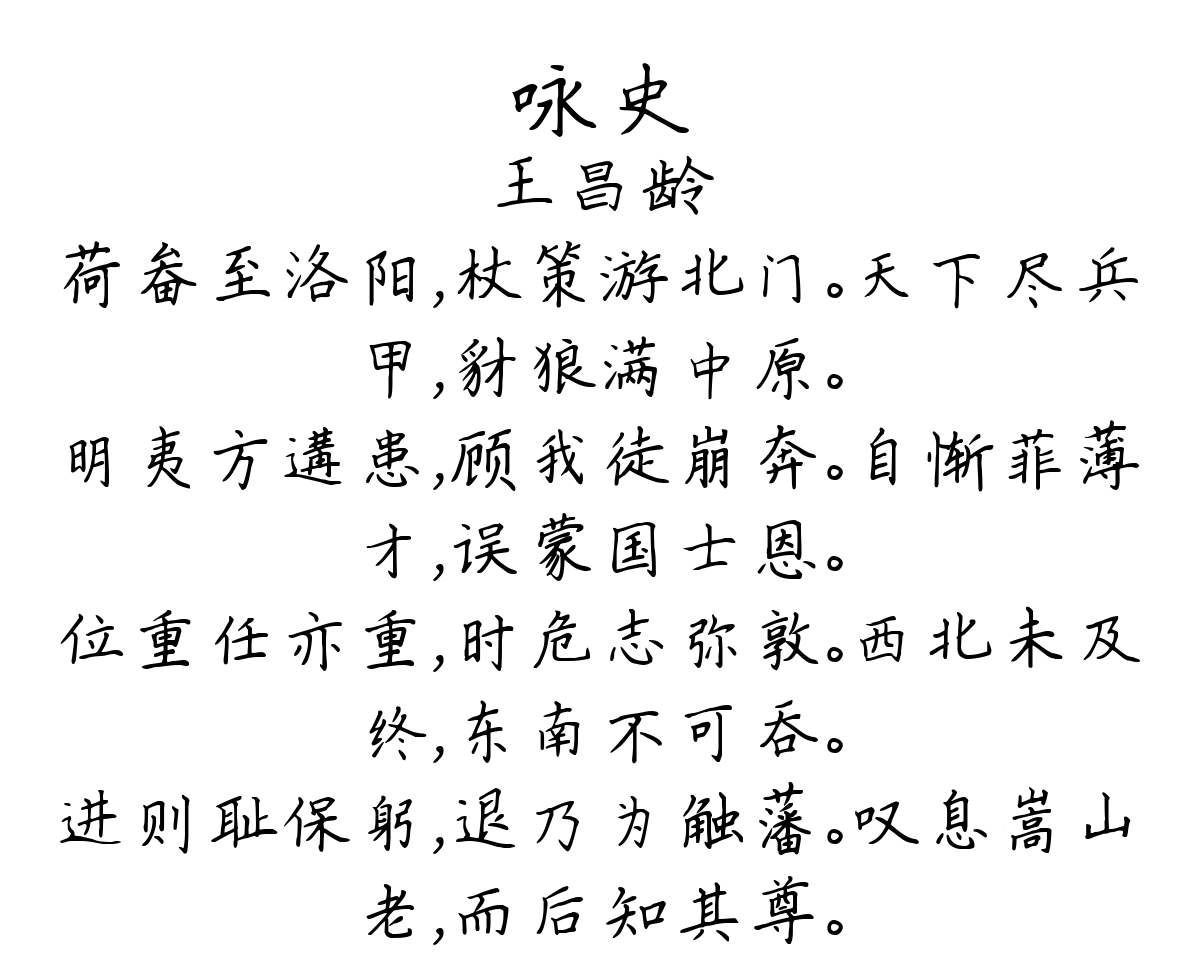 咏史
王昌龄
荷畚至洛阳,杖策游北门。天下尽兵
甲,豺狼满中原。
明夷方遘患,顾我徒崩奔。自惭菲薄
才,误蒙国士恩。
位重任亦重,时危志弥敦。西北未及
终,东南不可吞。
进则耻保躬,退乃为触藩。叹息嵩山
老,而后知其尊。